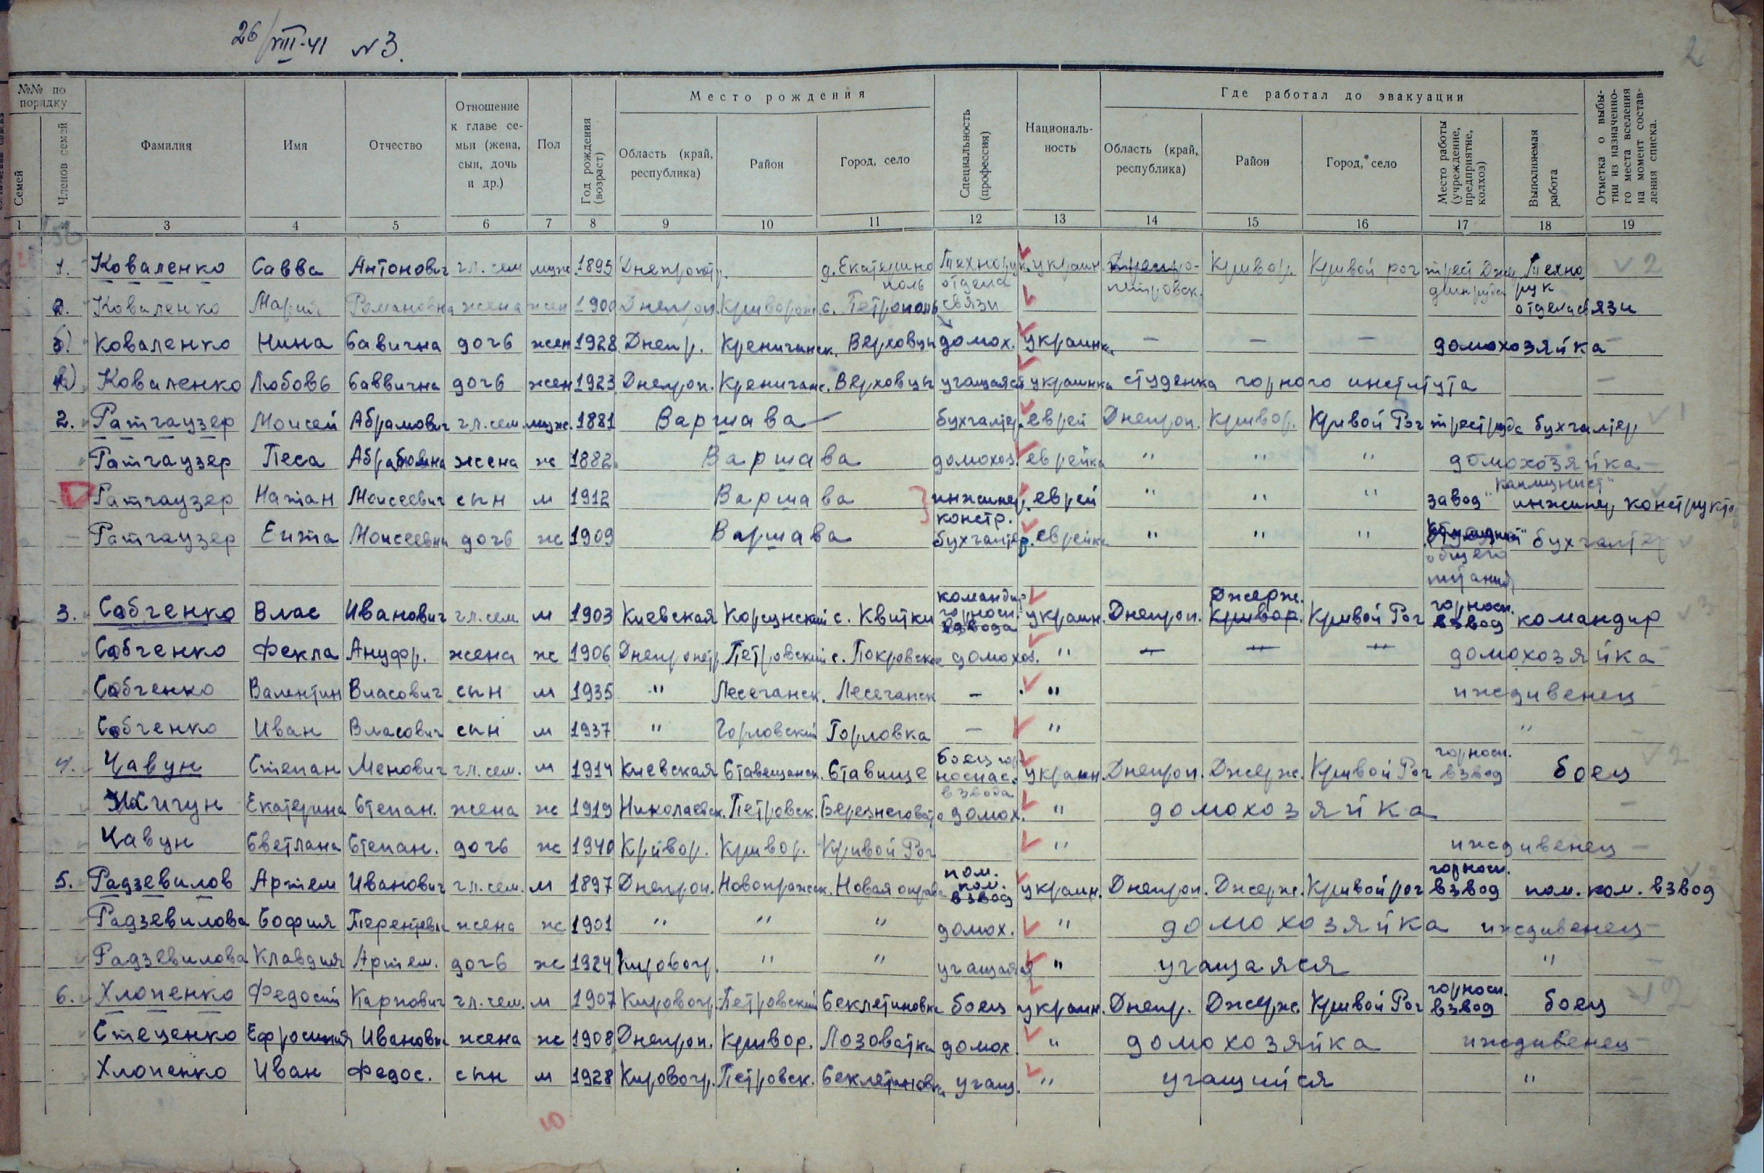 26/VIII-41 №3.
2
№№ по порядку
Семей
Членов семей
Фамилия
Имя
Отчество
Отношение к главе семьи (жена, сын, дочь и др.)
Пол
Год рождения (возраст)
Место рождения
Область (край, республика)
Район
Город, село
Специальность (профессия)
Национальность
Где работал до эвакуации
Область (край, республика)
Район
Город, село
Место работы (учреждение, предприятие, колхоз)
Выполняемая работа
Отметка о выбытии из назначенного места вселения на момент составления списка.
1 3 4 5 6 7 8 9 10 11 12 13 14 15 16 17 18 19
1. Коваленко Савва Антонович гл. сем муж 1895 Днепропетр. д. Екатеринополь Технорук отдела связи украин. Днепропетровск. Кривор. Кривой рог трест Технорук отдела связи 2
2. Коваленко Мария Романовна жена жен 1900 Днепроп. Криворож с. Петрополь
б) Коваленко Нина Савична дочь жен 1928 Днепр. Креничанск. Верховцы домох. украинка — — — домохозяйка —
в) Коваленко Любовь Саввична дочь жен 1923 Днепроп. Креничанс. Верховцы учащаяся украинка студенка горного института —
2. Ратгаузер Моисей Абрамович гл. сем. муж. 1881 Варшава бухгалтер. еврей Днепроп. Кривор. Кривой Рог бухгалтер 1
Ратгаузер Песа Абрамовна жена ж 1882 Варшава домохоз. еврейка " " " домохозяйка —
Ратгаузер Натан Моисеевич сын м 1912 Варшава инжинер. констр. еврей " " " завод "Коммунист" инжинер конструктор
— Ратгаузер Ента Моисеевна дочь ж 1909 Варшава бухгалтер. еврейка " " " общего питания бухгалтер
3. Сабченко Влас Иванович гл. сем. м 1903 Киевская Корсунский с. Квитки командир горносп. взвода украин. Днепроп. Кривор. Джерж. Кривой Рог горносп. взвод командир 3
Сабченко Фекла Ануфр. жена ж 1906 Днепропетр. Петровский с. Покровское домохоз. " — — — домохозяйка —
Сабченко Валентин Власович сын м 1935 " Лесечанск. Лесечанск — " иждивенец —
Сабченко Иван Власович сын м 1937 " Горловский Горловка — " " —
4. Чавун Степан Менович гл. сем. м 1914 Киевская Ставещанск. Ставище боец гор носпас. взвода украин. Днепроп. Джерж. Кривой Рог горносп. взвод боец 2
Жигун Екатерина Степан. жена ж 1919 Николаевск. Петровск. домох. " домохозяйка —
Чавун Светлана Степан. дочь ж 1940 Кривор. Кривор. Кривой Рог " иждивенец —
5. Радзевилов Артем Иванович гл. сем. м 1897 Днепроп. Новопражск. Новая пом. ком. взвод украин. Днепроп. Джерж. Кривой рог горносп. взвод пом. ком. взвод
Радзевилова София Терентьевн жена ж 1901 " " " домох. " домохозяйка иждивенец —
Радзевилова Клавдия Артем. дочь ж 1924 Кировогр. " " учащаяся " учащаяся " —
6. Хлопенко Федосий Карпович гл. сем. м 1907 Кировогр. Петровский Секлетиновка боец украин. Днепр. Джерж. Кривой Рог горносп. взвод боец 2
Стеценко Ефросиния Ивановна жена ж 1908 Днепроп. Кривор. Лозоватка домох. " домохозяйка иждивенец —
Хлопенко Иван Федос. сын м 1928 Кировогр. Петровск. Секлетиновк учащ. " учащийся "